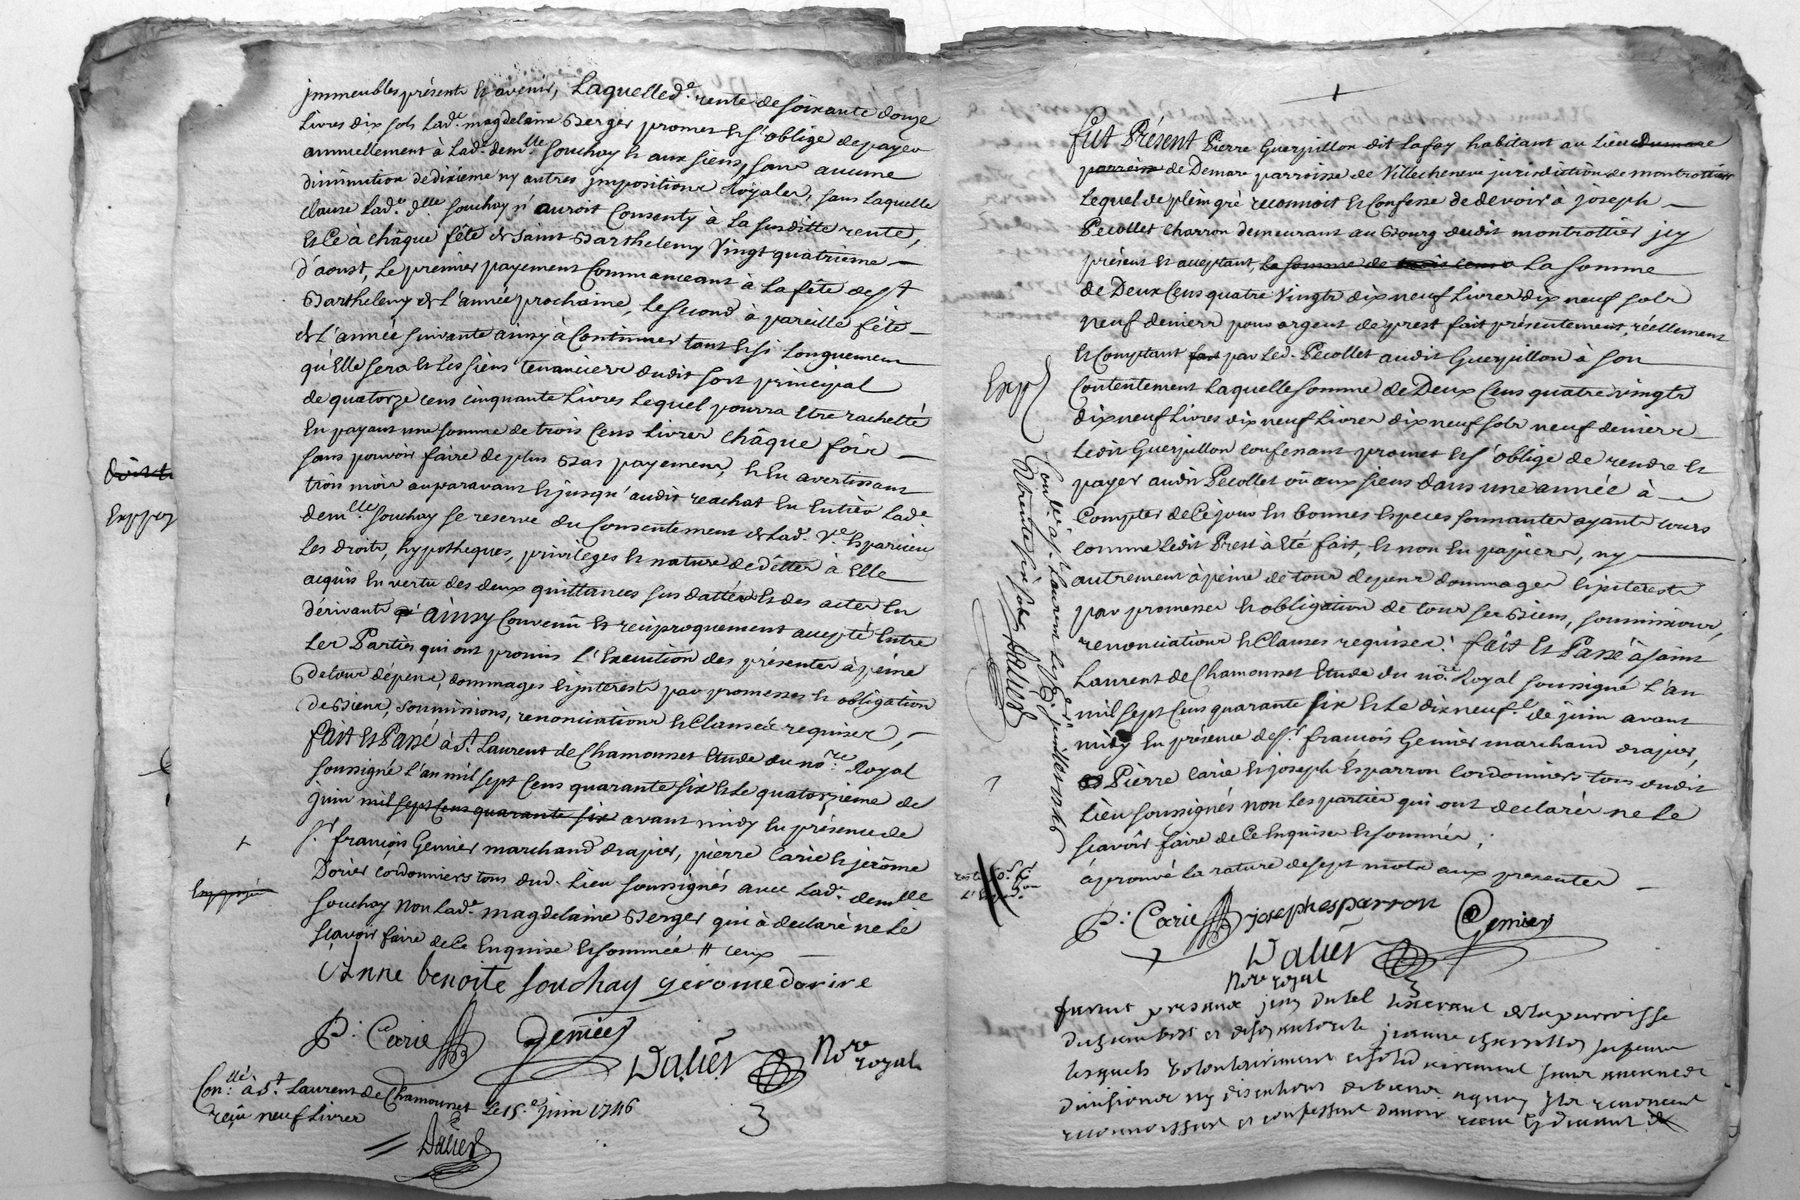 immeubles présents et avenir, Laquelle de. rente de soixante douze
Livres dix sols Lade. magdelaine Berger promet et s'oblige de payer
annuellement à Lade. demlle Souchay et aux siens, sans aucune
diminution de dixieme ny autres impositions Royales, sans Laquelle
clause Lade. dlle Souchay n'auroit Consenty à La susditte rente,
et Ce à châque fête de Saint Barthelemy Vingt quatrieme
d'aoust, Le premier payement Commanceant à La fête de St
Barthelemy de L'année prochaine, Le second à pareille fête
de L'année suivante ainsy à Continuer tant et si Longuement
qu'Elle sera et Les siens tenanciers dudit sort principal
de quatorze cens cinquante Livres Lequel pourra Etre rachetté
En payant une somme de trois Cens Livres châque fois
sans pouvoir faire de plus Bas payement, et En avertissant
trois mois auparavant et jusqu'audit reachat En Entier Lade
demlle Souchay se reserve du Consentement de Lad. Ve. Esparieu
Les droits, hypotheques, privileges et nature de dettes à Elle
acquis En vertu des deux quittances sus dattés et des actes En
dérivants ainsy Convenû et reciproquement accepté Entre
Les Parties qui ont promis L'Execution des présentes à peine
de tous dépens, dommages Interests par promesses et obligation
de Biens, soumissions, renonciations et Clauses requises,
fait et Passé à St. Laurent de Chamousset Etude du nore. Royal
soussigné L'an mil sept Cens quarante six et Le quatorzieme de
juin mil sept Cens quarante six avant midy En présence de
Sr. françois Genier marchand drapier, pierre Carie et jerôme
Dorier cordonniers tous dud. Lieu soussignés avec Lade. demlle
Souchay non Lade. magdelaine Berger qui à declaré ne Le
sçavoir faire de Ce Enquise et sommée
Anne benoite Souchay gerome dorire
P: Carie Genier
Dalier Nore royal
Conllé. à St. Laurent de Chamousset Le 15e juin 1746
reçu neuf Livres
Dalier
Fut Présent Pierre Guerpillon dit Lafay habitant au Lieu
de Demare parroisse de Villecheneve jurisdiction de montrottier
Lequel de plein gré reconnoit et Confesse de devoir à joseph
Pecollet charron demeurant au Bourg dudit montrottier icy
présent et acceptant, La somme de La somme
de Deux Cens quatre Vingts dix neuf Livres dix neuf sols
neuf deniers pour argent de prest fait présentement, réellement
et Comptant par Led. Pecollet audit Guerpillon à son
Contentement Laquelle somme de Deux Cens quatre vingts
dix neuf Livres dix neuf Livres dix neuf sols neuf deniers
Ledit Guerpillon confessant promet et s'oblige de rendre et
payer audit Pecollet où aux siens dans une année à
Compter de Ce jour En bonnes Especes sonnantes ayants cours
comme Ledit Prest à Eté fait, et non En papiers, ny
autrement à peine de tous depens dommages Interests
par promesses et obligation de tous ses Biens, soumissions,
renonciations et Clauses requises. fait et Passé à saint
Laurent de Chamousset Etude du nore. Royal soussigné L'an
mil sept Cens quarante six et Le dix neufe. de juin avant
midy En présence de Sr. françois Genier marchand drapier,
Pierre Carie et joseph Esparron Cordonniers tous dudit
Lieu soussignés non Les parties qui ont declarés ne Le
sçavoir faire de Ce Enquises et sommées,
approuvé La rature de sept mots aux presentes
P: Carie joseph esparron Genier
Dalier
Nore royal
furent presans jean dutel tisserand de la parroisse
Exp